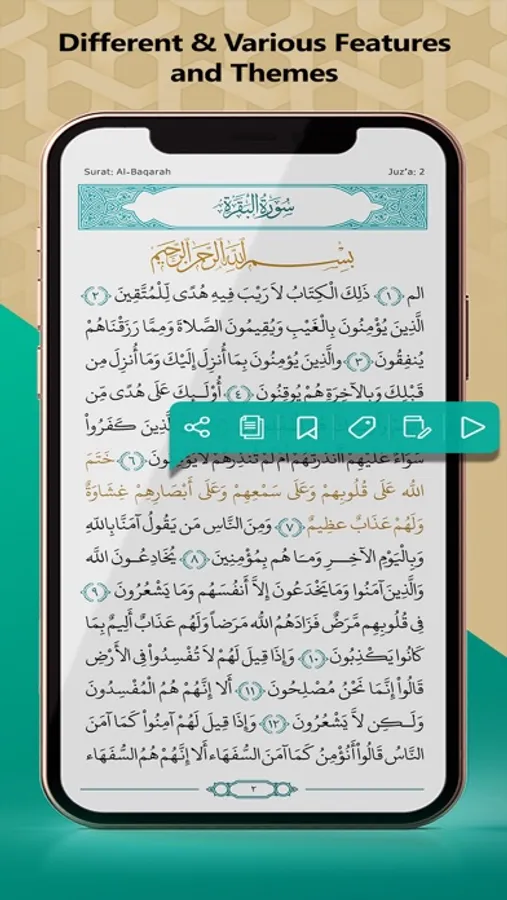 Different & Various Features
and Themes
Surat: Al-Baqarah
Juz'a: 2
سُورَةُ الْبَقَرَةِ
بِسْمِ اللَّهِ الرَّحْمَنِ الرَّحِيمِ
الم ﴿١﴾ ذَلِكَ الْكِتَابُ لاَ رَيْبَ فِيهِ هُدًى لِّلْمُتَّقِينَ ﴿٢﴾
الَّذِينَ يُؤْمِنُونَ بِالْغَيْبِ وَيُقِيمُونَ الصَّلاةَ وَمِمَّا رَزَقْنَاهُمْ
يُنفِقُونَ ﴿٣﴾ والَّذِينَ يُؤْمِنُونَ بِمَا أُنزِلَ إِلَيْكَ وَمَا أُنزِلَ مِن
قَبْلِكَ وَبِالآخِرَةِ هُمْ يُوقِنُونَ ﴿٤﴾ أُوْلَئِكَ عَلَى هُدًى مِّن
الَّذِينَ كَفَرُواْ
سَوَاءٌ عَلَيْهِمْ أَأَنذَرْتَهُمْ أَمْ لَمْ تُنذِرْهُمْ لاَ يُؤْمِنُونَ ﴿٦﴾ خَتَمَ
اللّه عَلَى قُلُوبِهمْ وَعَلَى سَمْعِهِمْ وَعَلَى أَبْصَارِهِمْ غِشَاوَةٌ
وَلَهُمْ عَذَابٌ عظِيمٌ ﴿٧﴾ وَمِنَ النَّاسِ مَن يَقُولُ آمَنَّا بِاللّهِ
وَبِالْيَوْمِ الآخِرِ وَمَا هُم بِمُؤْمِنِينَ ﴿٨﴾ يُخَادِعُونَ اللّهَ
وَالَّذِينَ آمَنُوا وَمَا يَخْدَعُونَ إِلاَّ أَنفُسَهُم وَمَا يَشْعُرُونَ ﴿٩﴾
فِي قُلُوبِهِم مَّرَضٌ فَزَادَهُمُ اللّهُ مَرَضاً وَلَهُم عَذَابٌ أَلِيمٌ بِمَا
كَانُوا يَكْذِبُونَ ﴿١٠﴾ وَإِذَا قِيلَ لَهُمْ لاَ تُفْسِدُواْ فِي الأَرْضِ
قَالُواْ إِنَّمَا نَحْنُ مُصْلِحُونَ ﴿١١﴾ أَلا إِنَّهُمْ هُمُ الْمُفْسِدُونَ
وَلَكِن لاَّ يَشْعُرُونَ ﴿١٢﴾ وَإِذَا قِيلَ لَهُمْ آمِنُواْ كَمَا آمَنَ
النَّاسُ قَالُواْ أَنُؤْمِنُ كَمَا آمَنَ السُّفَهَاء أَلا إِنَّهُمْ هُمُ السُّفَهَاء
٢